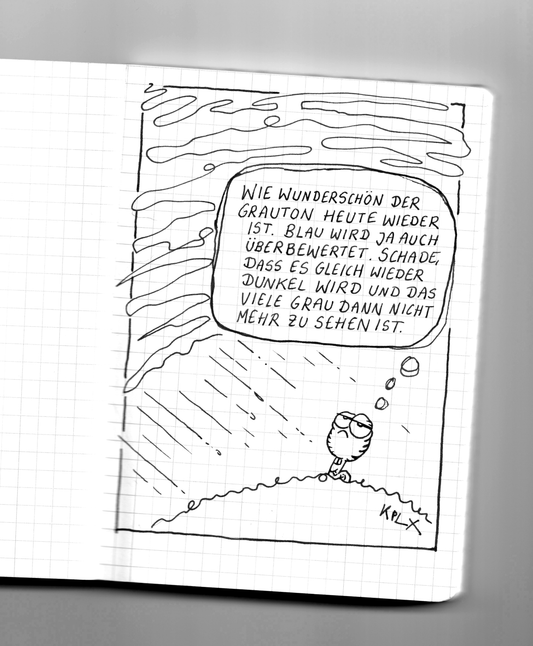 WIE WUNDERSCHÖN DER
GRAUTON HEUTE WIEDER
IST. BLAU WIRD JA AUCH
ÜBERBEWERTET. SCHADE,
DASS ES GLEICH WIEDER
DUNKEL WIRD UND DAS
VIELE GRAU DANN NICHT
MEHR ZU SEHEN IST.
KPLX